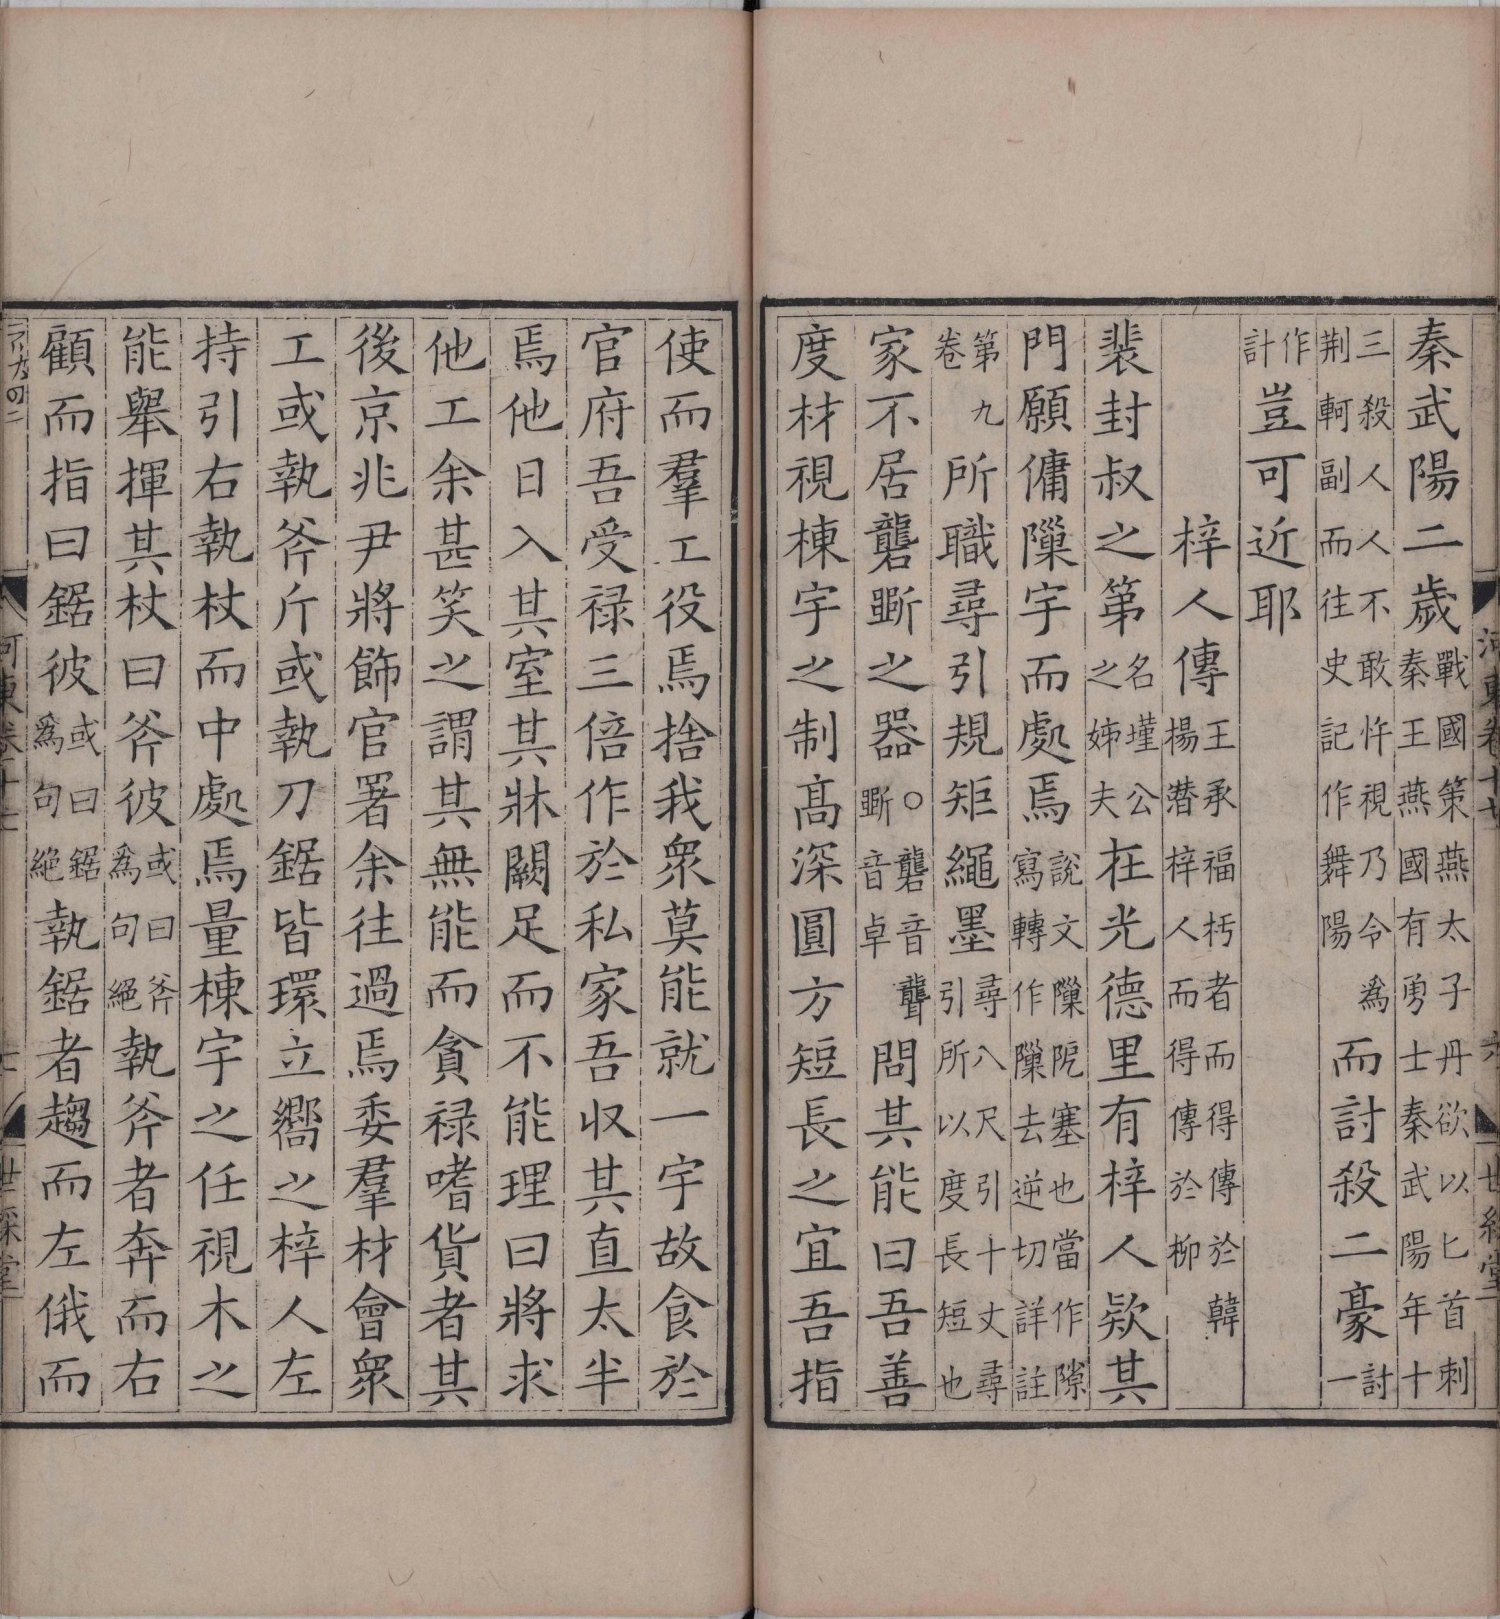 秦武陽二歲戰國策燕太子丹欲以匕首刺秦王燕國有勇士秦武陽年十
三殺人人不敢忤視乃令爲荆軻副而往史記作舞陽而討殺二豪討一
作計豈可近耶
梓人傳王承福杇者而得傳於韓楊潜梓人而得傳於柳
裴封叔之第名墐公之姊夫在光德里有梓人欵其
門願傭隟宇而處焉說文隟阸塞也當作隙寫轉作隟隟去逆切詳註
第九卷所職尋引規矩繩墨尋八尺引十丈尋引所以度長短也
家不居礱斲之器○礱音聾斲音卓問其能曰吾善
度材視棟宇之制髙深圓方短長之宜吾指
使而羣工役焉捨我衆莫能就一宇故食於
官府吾受禄三倍作於私家吾収其直太半
焉他日入其室其牀闕足而不能理曰將求
他工余甚笑之謂其無能而貪禄嗜貨者其
後京兆尹將飾官署余徃過焉委羣材會衆
工或執斧斤或執刀鋸皆環立嚮之梓人左
持引右執杖而中處焉量棟宇之任視木之
能舉揮其杖曰斧彼或曰斧爲句絕執斧者奔而右
顧而指曰鋸彼或曰鋸爲句絕執鋸者趨而左俄而